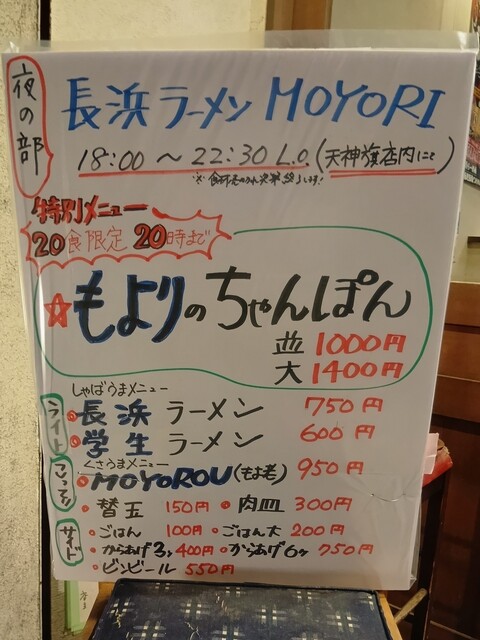 夜の部
長浜ラーメン MOYORI
18:00 〜 22:30 L.O.(天神旗店内にて)
特別メニュー
20食限定 20時まで
☆もよりのちゃんぽん
並 1000円
大 1400円
しゃばうまメニュー
ライト
・長浜ラーメン 750円
・学生ラーメン 600円
くさうまメニュー
こってり
・MOYOROU(もよ老) 950円
・替玉 150円 ・肉皿 300円
サイド
・ごはん 100円 ・ごはん大 200円
・からあげ3ヶ 400円 ・からあげ6ヶ 750円
・ビンビール 550円